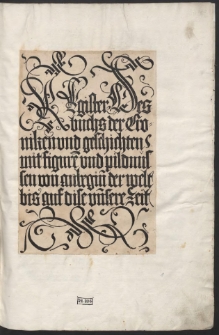 Register Des
buchs der Cro
niken und geschichten
mit figurē und pildnus
sen von anbeginn der welt
bis auf dise unsere zeit